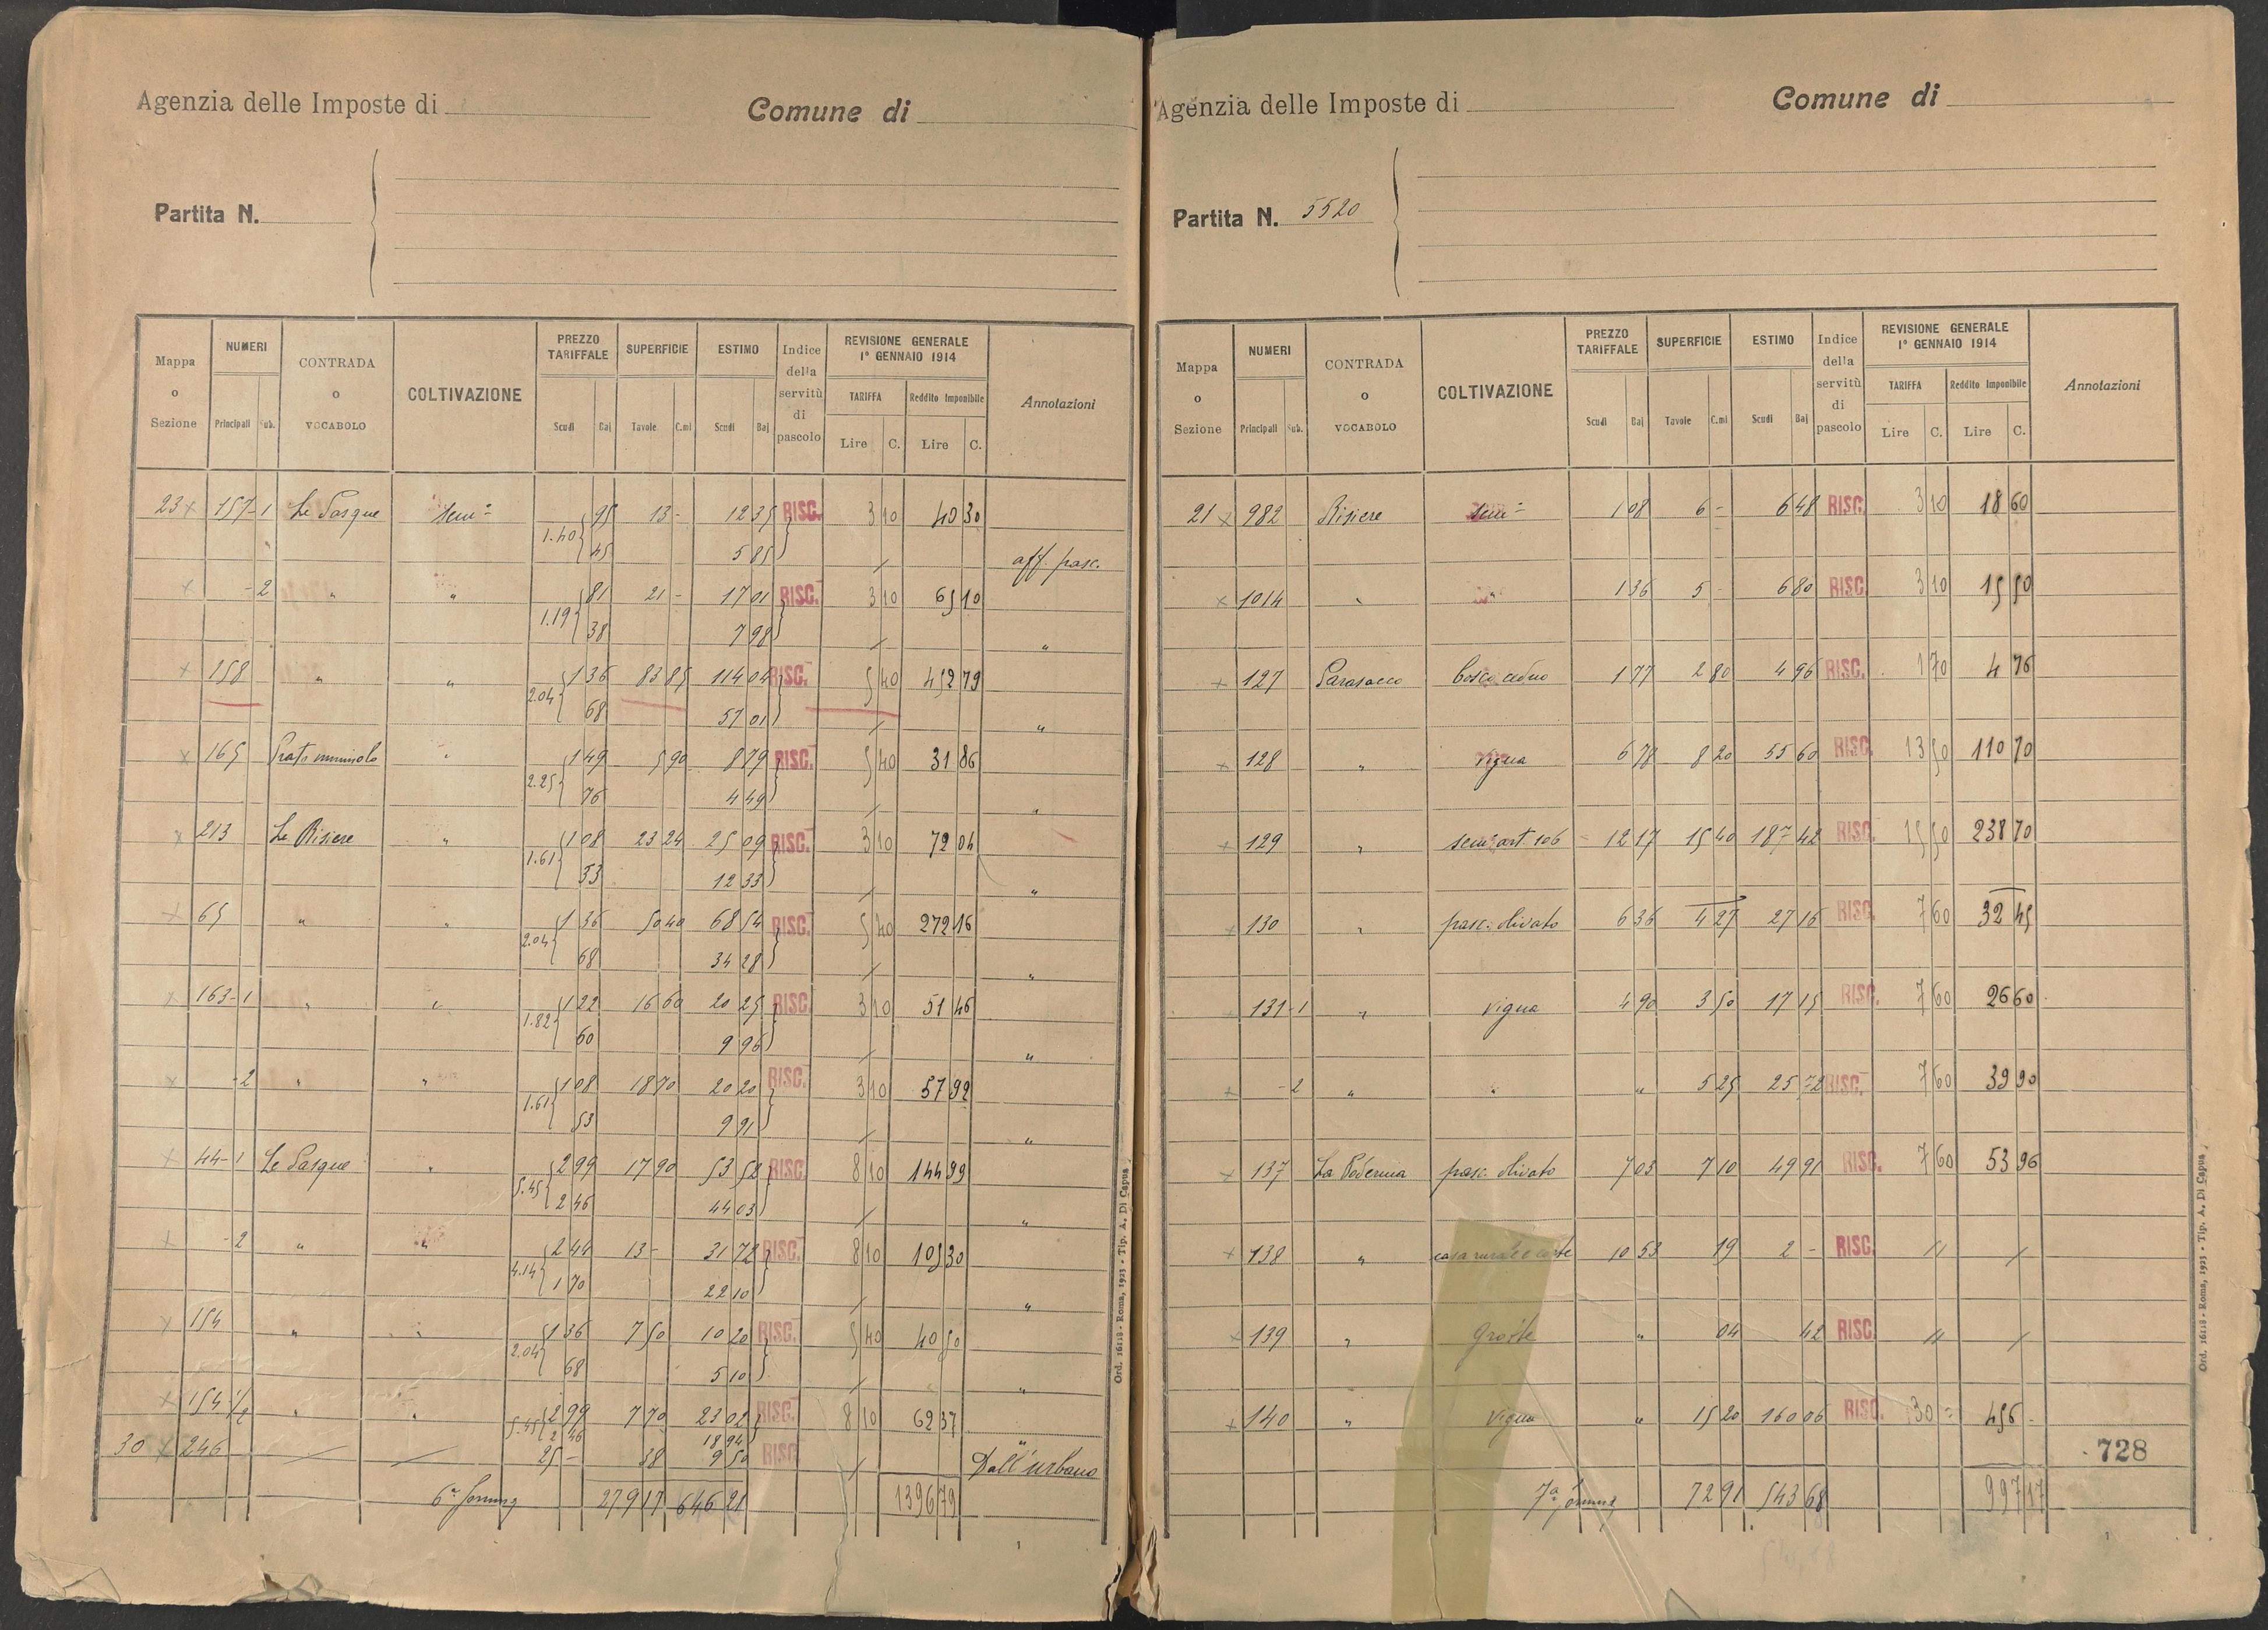 Agenzia delle Imposte di Comune di
Partita N.
Mappa o Sezione NUMERI Principali Sub. CONTRADA o VOCABOLO COLTIVAZIONE PREZZO TARIFFALE Scudi Baj SUPERFICIE Tavole C.mi ESTIMO Scudi Baj Indice della servitù di pascolo REVISIONE GENERALE 1° GENNAIO 1914 TARIFFA Lire C. Reddito Imponibile Lire C. Annotazioni
23 x 157-1 Le Pasque sem.e 95 13 - 12 35 RISC. 3 10 40 30
1.40 45 5 85 aff. pasc.
x -2 " " 81 21 - 17 01 RISC. 3 10 65 10
1.19 38 7 98 "
x 158 " " 1 36 83 85 114 04 RISC. 5 40 452 79
2.04 68 57 01 "
x 165 " 1 49 5 90 8 79 RISC. 5 40 31 86
2.25 76 4 49 "
x 213 Le Risiere " 1 08 23 24 25 09 RISC. 3 10 72 04
1.61 53 12 33 "
x 65 " " 1 36 50 40 68 54 RISC. 5 40 272 16
2.04 68 34 28 "
x 163-1 " " 1 22 16 60 20 25 RISC. 3 10 51 46
1.82 60 9 96 "
x -2 " " 1 08 18 70 20 20 RISC. 3 10 57 92
1.61 53 9 91 "
x 44-1 Le Pasque " 2 99 17 90 53 52 RISC. 8 10 144 99
5.45 2 46 44 03 "
x -2 " " 2 44 13 - 31 72 RISC. 8 10 105 30
4.14 1 70 22 10 "
x 154 " " 1 36 7 50 10 20 RISC. 5 40 40 50
2.04 68 5 10 "
x 154 1/2 " " 2 99 7 70 23 02 RISC. 8 10 62 37
5.45 2 46 18 94 "
30 x 246 25 - 38 9 50 RISC. Dall'urbano
6a somma 279 17 646 21 1396 79
Ord. 16118 - Roma, 1923 - Tip. A. Di Capua.
Agenzia delle Imposte di Comune di
Partita N. 5520
Mappa o Sezione NUMERI Principali Sub. CONTRADA o VOCABOLO COLTIVAZIONE PREZZO TARIFFALE Scudi Baj SUPERFICIE Tavole C.mi ESTIMO Scudi Baj Indice della servitù di pascolo REVISIONE GENERALE 1° GENNAIO 1914 TARIFFA Lire C. Reddito Imponibile Lire C. Annotazioni
21 x 982 Risiere sem.e 1 08 6 - 6 48 RISC. 3 10 18 60
x 1014 " " 1 36 5 - 6 80 RISC. 3 10 15 50
x 127 Parasacco bosco ceduo 1 77 2 80 4 96 RISC. 1 70 4 76
x 128 " vigna 6 78 8 20 55 60 RISC. 13 50 110 70
x 129 " 12 17 15 40 187 42 RISC. 15 50 238 70
x 130 " pasc. olivato 6 36 4 27 27 16 RISC. 7 60 32 45
131-1 " vigna 4 90 3 50 17 15 RISC. 7 60 26 60
x -2 " " " 5 25 25 72 RISC. 7 60 39 90
x 137 pasc. olivato 7 03 7 10 49 91 RISC. 7 60 53 96
x 138 " casa rurale e corte 10 53 19 2 - RISC. "
x 139 " Grotte " 04 42 RISC. "
x 140 " vigna " 15 20 160 06 RISC. 30 = 456 -
728
7a somma 72 91 543 68 997 17
Ord. 16118 - Roma, 1923 - Tip. A. Di Capua.